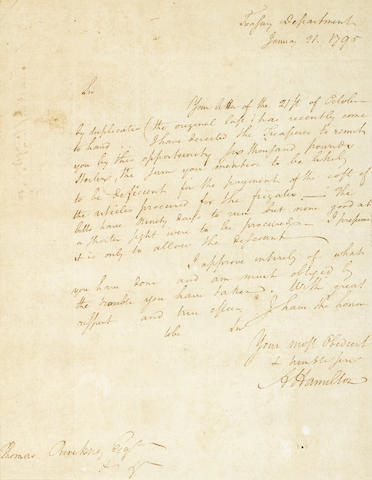 Treasury Department
January 21. 1795
Sir
Your letter of the 21st of October
by duplicate (the original lost) has recently come
to hand. I have directed the Treasurer to remit
you by this opportunity thousand pounds
Sterlg the sum you mention to be likely
to be deficient for the payment of the cost of
the articles procured for the frigates — The
bills have Ninety days to run but none good at
a shorter sight were to be procured — I presume
it is only to allow the discount
I approve entirely of what
you have done and am much obliged by
the trouble you have taken. With great
respect and true esteem I have the honor
to be Sir
Your most Obedient
& humble serv
A Hamilton
Thomas Pinckney Esqr